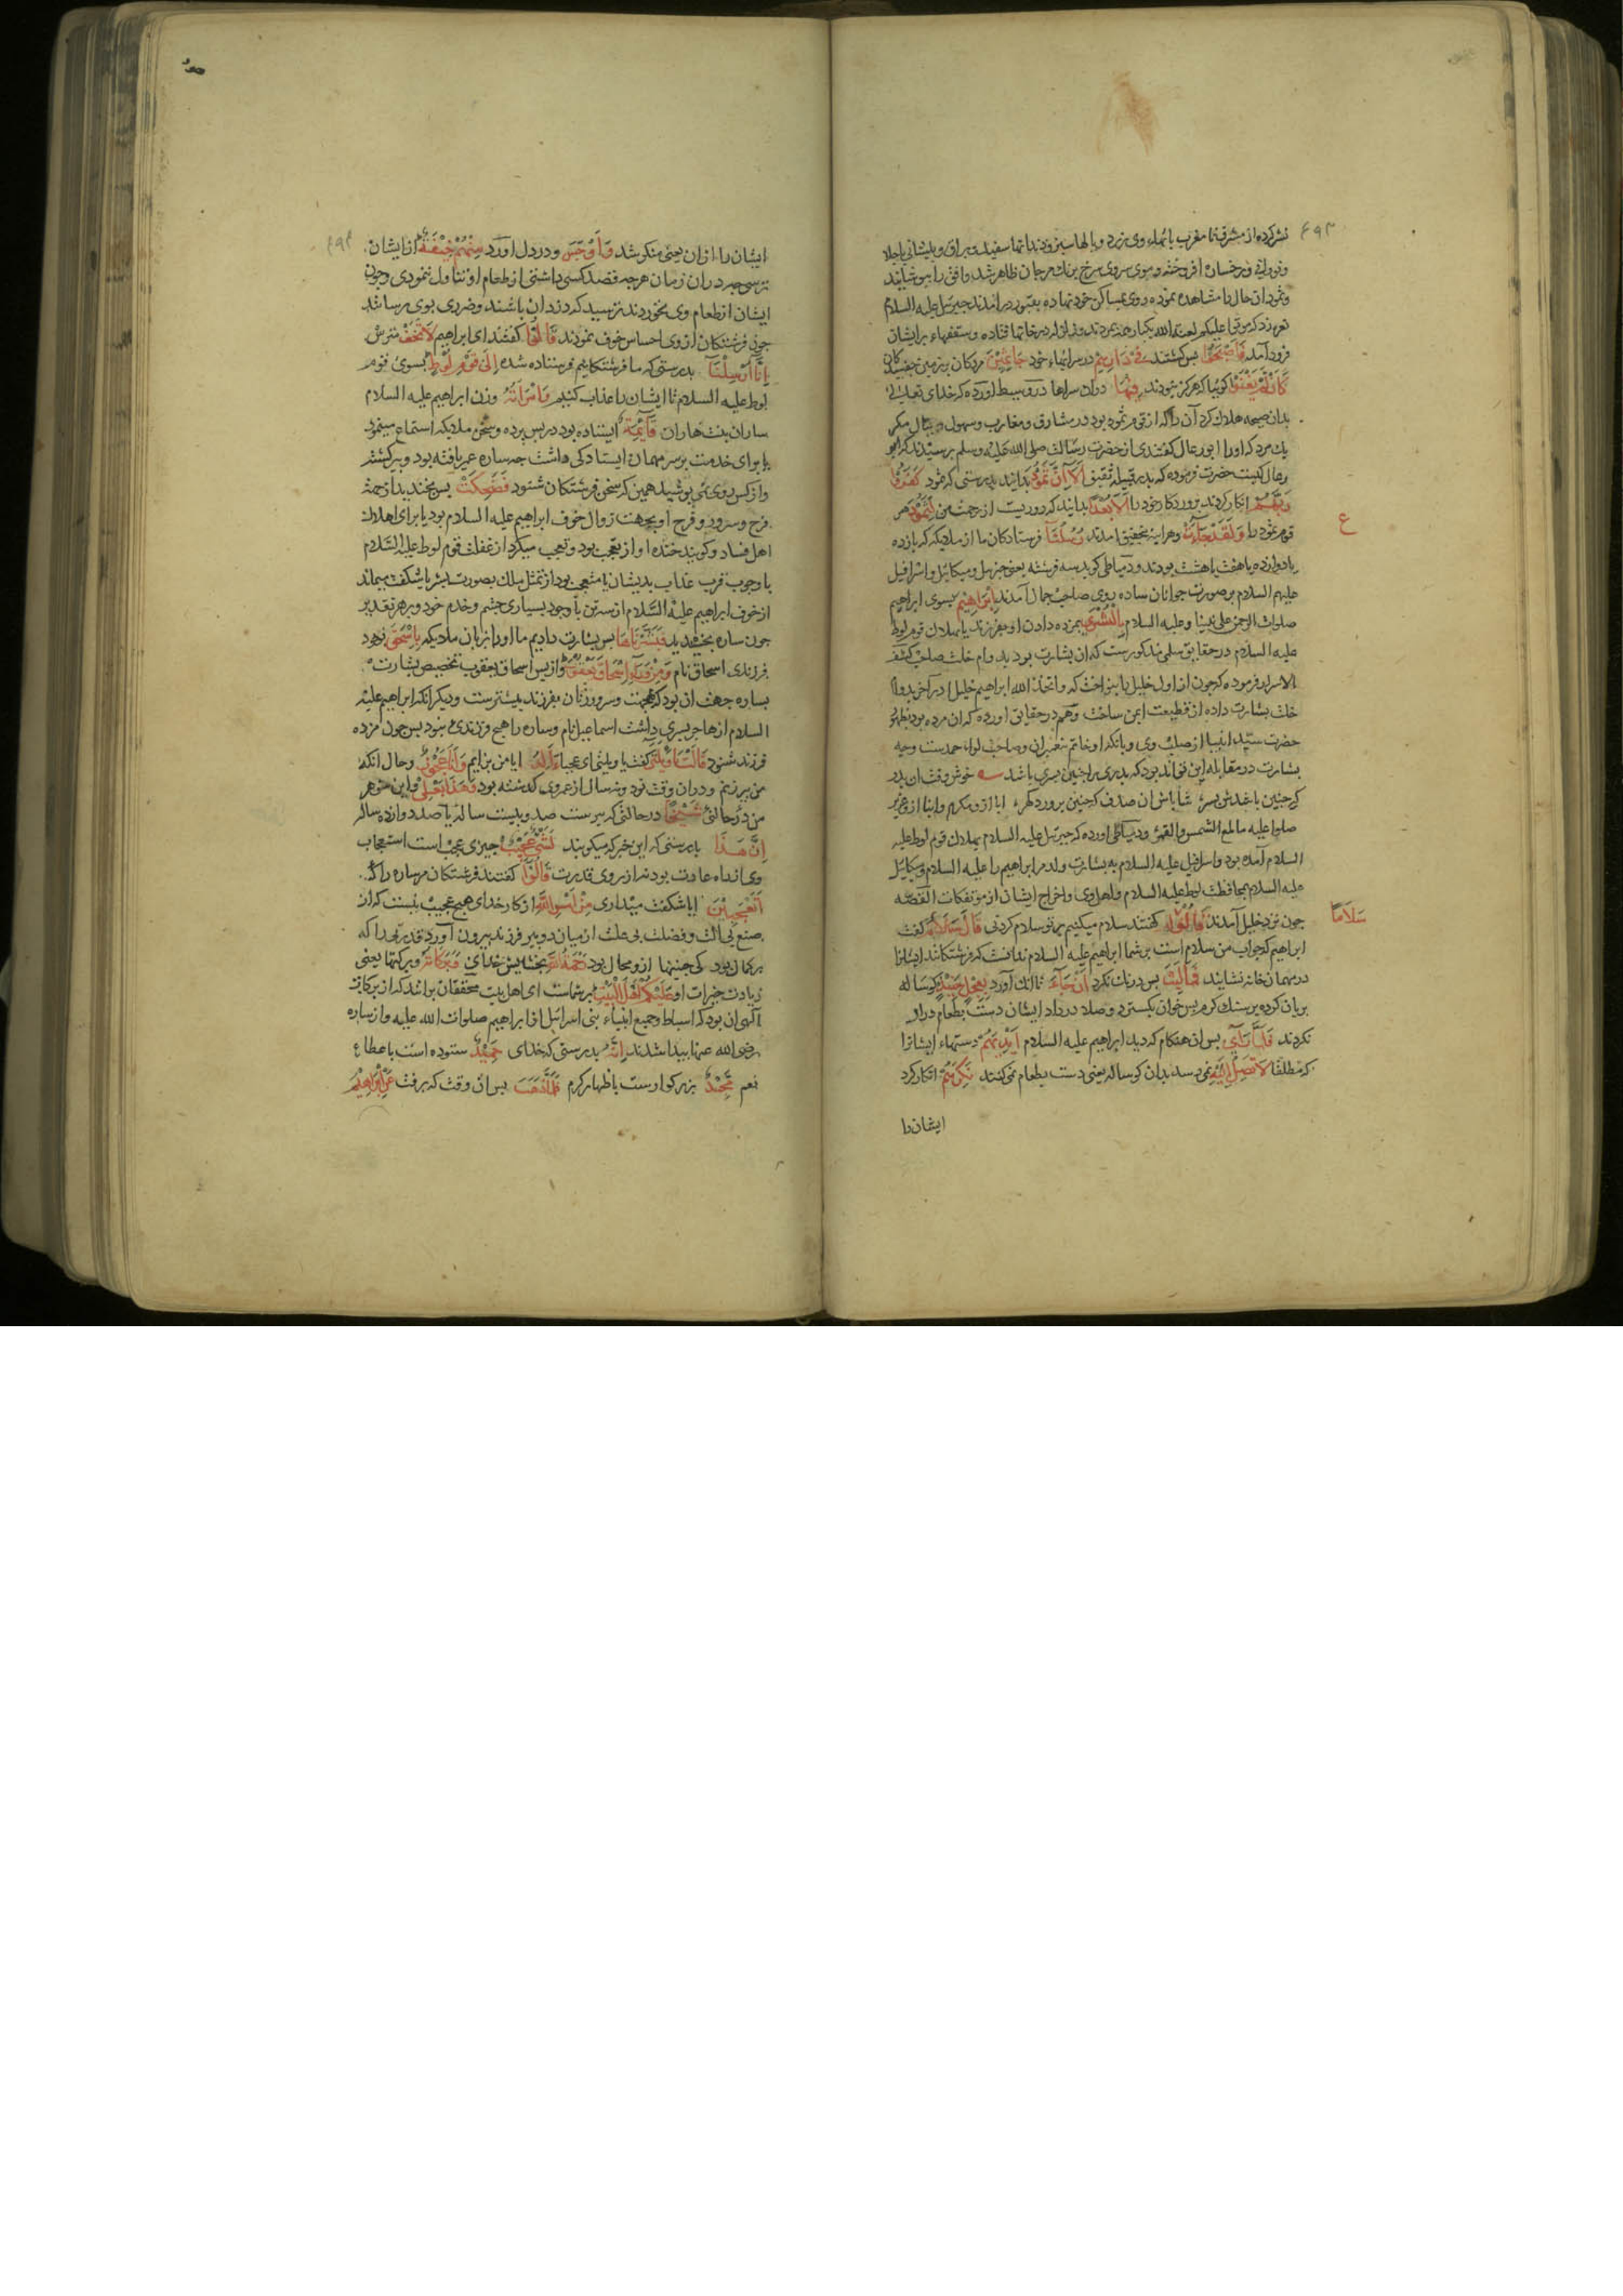 ۶۹۳
نشر کرده از مشرق تا مغرب پاهاء وی زرد و بالها سبز و دندانها سفید و براق و پیشانی باجلا
و نورانی و رخسارهٔ افروخته و موی سروی سرخ برنك مرجان ظاهر شد و افق را بپوشانید
و ثمود ان حال را مشاهده نموده روی بمساکن خود نهاده بقبور در امدند جبرئیل علیه السلام
نعره زد که موتوا علیکم لعنة الله یکبار همه مردند و زلزله در خانها فتاده و سقفها بر ایشان
فرود آمد فَاَصْبَحُوا پس کشتند فِی دِیَارِهِمْ در سراهاء خود جَاثِمِیْنَ مردکان بر زمین چسپیدکان
كَاَنْ لَمْ یَغْنَوْا کویا که هرکز نبودند فِیْهَا دران سراها در وسیط اورده که خدای تعالی
بدان صیحه هلاك کرد آن را که از قوم ثمود بود در مشارق و مغارب و سهول و جبال مکر
یك مرد که اورا ابو رغال کفتندی از حضرت رسالت صلی الله علیه وسلم پرسیدند که ابو
رغال کیست حضرت فرموده که پدر قبیلهٔ ثقیف اَلَا اِنَّ ثَمُودَ بدانید بدرستی که ثمود كَفَرُوا
رَبَّهُمْ انکار کردند پروردکار خود را اَلَا بُعْدًا بدانید که دوریست از رحمت من لِثَمُودَ مر
قوم ثمود را وَلَقَدْ جَاءَتْ و هراینه بتحقیق امدند رُسُلُنَا فرستادکان ما از ملایکه که یازده
یا دوازده یا هفت یا هشت بودند و دمیاطی کوید سه فرشته یعنی جبرئیل و میکائیل و اسرافیل
علیهم السلام بر صورت جوانان ساده روی صاحب جمال آمدند اِبْرَاهِیْمَ بسوی ابراهیم
صلوات الرحمن علی نبینا و علیه السلام بِالْبُشْرٰی بمژده دادن او بفرزند یا بهلاك قوم لوط
علیه السلام در حقایق سلمی مذکورست که ان بشارت بود بدوام خلت صاحب کشف
الاسرار فرموده که چون از اول خلیل را بنواخت که و اتخذ الله ابراهیم خلیلا در آخر بدوام
خلت بشارت داده از قطیعت ایمن ساخت و هم در حقایق اورده که ان مژده بود بظهور
حضرت سید انبیا از صلب وی و بانکه او خاتم پیغمبران و صاحب لواء حمدست و چه
بشارت در مقابله این تواند بود که پدری را چنین پسری باشد خوش وقت ان پدر
که چنین باشدش پسر شاباش ان صدف که چنین پرورد کهر ابا ازو مکرم و ابنا ازو عزیز
صلوا علیه ما طلع الشمس والقمر و دمیاطی اورده که جبرئیل علیه السلام بهلاك قوم لوط علیه
السلام آمده بود و اسرافیل علیه السلام به بشارت ولد مر ابراهیم را علیه السلام و میکائیل
علیه السلام بمحافظت لوط علیه السلام و اهل وی و اخراج ایشان از مؤتفکات القصه
چون نزد خلیل آمدند قَالُوا کفتند سلام میکنیم بر تو سلام کردنی قَالَ سَلَامٌ کفت
ابراهیم که جواب من سلام است بر شما ابراهیم علیه السلام ندانست که فرشتکانند ایشانرا
در مهمان خانه نشانید فَمَا لَبِثَ پس درنك نکرد اَنْ جَاءَ تا انك آورد بِعِجْلٍ حَنِیْذٍ کوساله
بریان کرده بر سنك کرم پس خوان بکسترد و صلا درداد ایشان دست بطعام دراز
نکردند فَلَمَّا رَاٰی پس ان هنکام که دید ابراهیم علیه السلام اَیْدِیَهُمْ دستهاء ایشانرا
که مطلقا لَا تَصِلُ اِلَیْهِ نمی رسد بدان کوساله یعنی دست بطعام نمی کنند نَكِرَهُمْ انکار کرد
ایشان را
ع
سَلَامًا
۶۹۴
ایشان را از ان یعنی منکر شد وَاَوْجَسَ و در دل اورد مِنْهُمْ خِیْفَةً از ایشان
ترسی چه در ان زمان هرچه قصد کسی داشتی از طعام او تناول ننمودی و چون
ایشان از طعام وی نخوردند ترسید که دزدان باشند و ضرری بوی رسانند
چون فرشتکان از وی احساس خوف نمودند قَالُوا کفتند ای ابراهیم لَا تَخَفْ مترس
اِنَّا اُرْسِلْنَا بدرستی که ما فرشتکانیم فرستاده شده اِلٰی قَوْمِ لُوطٍ بسوی قوم
لوط علیه السلام تا ایشان را عذاب کنیم وَامْرَاَتُهُ و زن ابراهیم علیه السلام
ساره بنت هاران قَائِمَةٌ ایستاده بود در پس پرده و سخن ملایکه استماع مینمود
یا برای خدمت بر سر مهمان ایستادکی داشت چه ساره عمر یافته بود و پیر کشته
و از کس روی نمی پوشید همین که سخن فرشتکان شنود فَضَحِكَتْ پس بخندید از جهت
فرح و سرور و فرح او بجهت زوال خوف ابراهیم علیه السلام بود یا برای اهلاك
اهل فساد و کویند خنده او از تعجب بود و تعجب میکرد از غفلت قوم لوط علیه السلام
با وجوب قرب عذاب بدیشان یا متعجب بود از تمثل ملك بصورت بشر یا شکفت میماند
از خوف ابراهیم علیه السلام از سه تن با وجود بسیاری حشم و خدم خود و بهر تقدیر
چون ساره بخندید فَبَشَّرْنَاهَا پس بشارت دادیم ما اورا از زبان ملایکه بِاِسْحٰقَ بوجود
فرزندی اسحاق نام وَمِنْ وَرَاءِ اِسْحٰقَ یَعْقُوْبَ و از پس اسحاق یعقوب تخصیص بشارت
بساره جهت ان بود که بهجت و سرور زنان بفرزند بیشترست و دیکر انکه ابراهیم علیه
السلام از هاجر پسری داشت اسماعیل نام و ساره را هیچ فرزندی نبود پس چون مژده
فرزند شنود قَالَتْ یَا وَیْلَتٰی کفت یا ویلتی ای عجبا ءَاَلِدُ ایا من بزایم وَاَنَا عَجُوْزٌ و حال انکه
من پیرزنم و دران وقت نود و نه سال از عمر وی کذشته بود وَهٰذَا بَعْلِیْ و این شوهر
من در حالتی شَیْخًا در حالتی که پیرست صد و بیست ساله یا صد و دوازده ساله
اِنَّ هٰذَا بدرستی که این خبر که میکویند لَشَیْءٌ عَجِیْبٌ چیزی عجب است استعجاب
وی از راه عادت بود نه از روی قدرت قَالُوْا کفتند فرشتکان مر ساره را که
اَتَعْجَبِیْنَ ایا شکفت میداری مِنْ اَمْرِ اللّٰهِ از کار خدای هیچ عجیب نیست که از
صنع بی الت و فضلت بی علت از میان دو پیر فرزند بیرون آورد قدرتی را که
بر کمال بود کی چنینها ازو محال بود رَحْمَةُ اللّٰهِ بخشایش خدای وَبَرَكَاتُهُ و برکتها یعنی
زیادت خیرات او عَلَیْكُمْ اَهْلَ الْبَیْتِ بر شماست ای اهل بیت محققان برانند که از برکات
آلهی ان بود که اسباط و جمیع انبیاء بنی اسرائیل از ابراهیم صلوات الله علیه و از ساره
رضی الله عنها پیدا شدند اِنَّهُ بدرستی که خدای حَمِیْدٌ ستوده است باعطاء
نعم مَجِیْدٌ بزرکوارست باظهار کرم فَلَمَّا ذَهَبَ پس ان وقت که برفت عَنْ اِبْرَاهِیْمَ